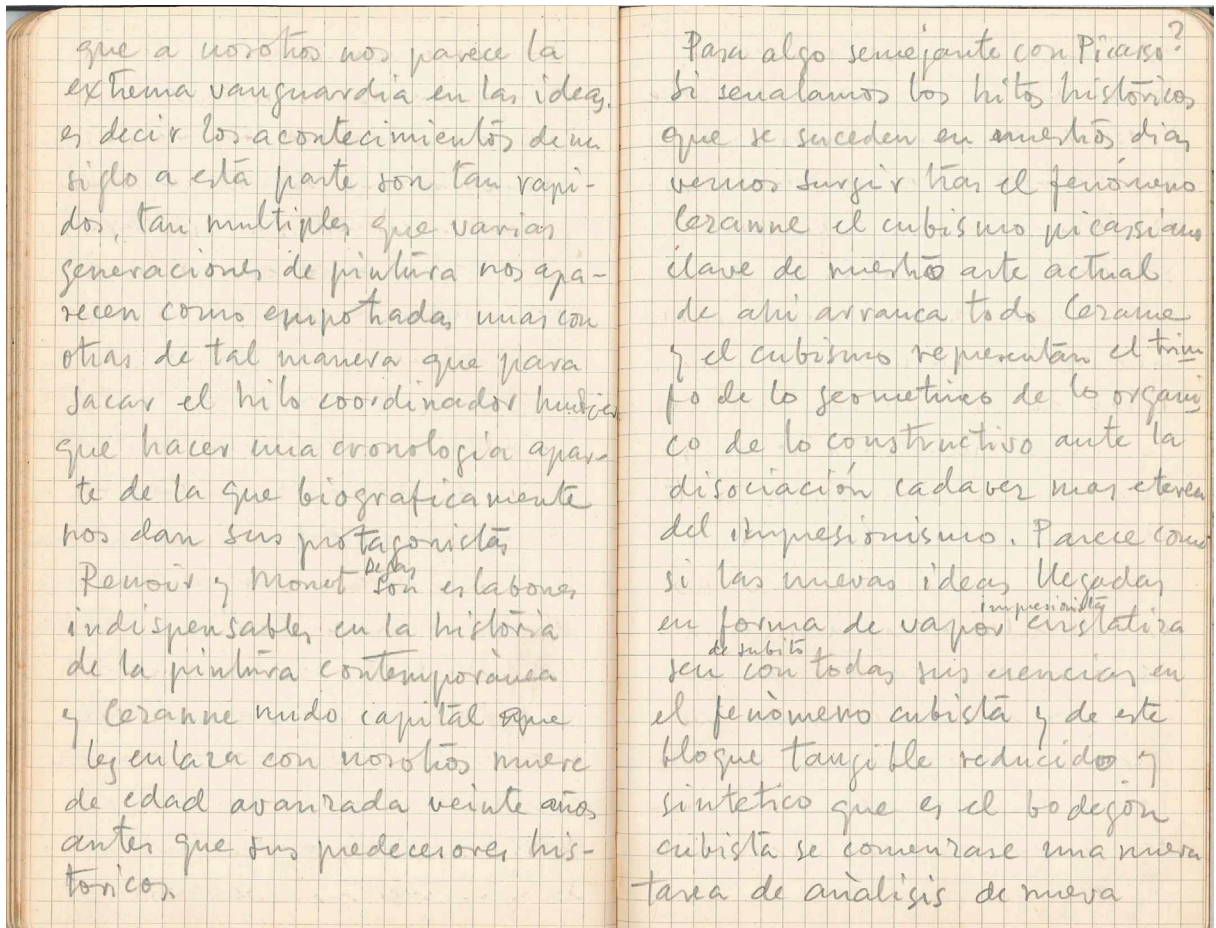 que a nosotros nos parece la
extrema vanguardia en las ideas.
es decir los acontecimientos de un
siglo a esta parte son tan rapi-
dos, tan multiples que varias
generaciones de pintura nos apa-
recen como empotradas unas con
otras de tal manera que para
sacar el hilo coordinador hubier
que hacer una cronologia apar-
te de la que biograficamente
nos dan sus protagonistas
Renoir y Monet Degas son eslabones
indispensables en la història
de la pintura contemporànea
y Cezanne nudo capital que
les enlaza con nosotros muere
de edad avanzada veinte años
antes que sus predecesores his-
toricos.
Pasa algo semejante con Picasso?
Si senalamos los hitos històricos
que se suceden en nuestros dias
vemos surgir tras el fenòmeno
Cezanne el cubismo picassiano
clave de nuestro arte actual
de ahi arranca todo Cezanne
y el cubismo representan el triun
fo de lo geometrico de lo organi
co de lo constructivo ante la
disociación cadavez mas eterea
del impresionismo. Parece como
si las nuevas ideas llegadas
en forma de vapor impresionista cristaliza
sen de subito con todas sus esencias en
el fenòmeno cubista y de este
bloque tangible reducido y
sintetico que es el bodegòn
cubista se comenzase una nueva
tarea de anàlisis de nueva